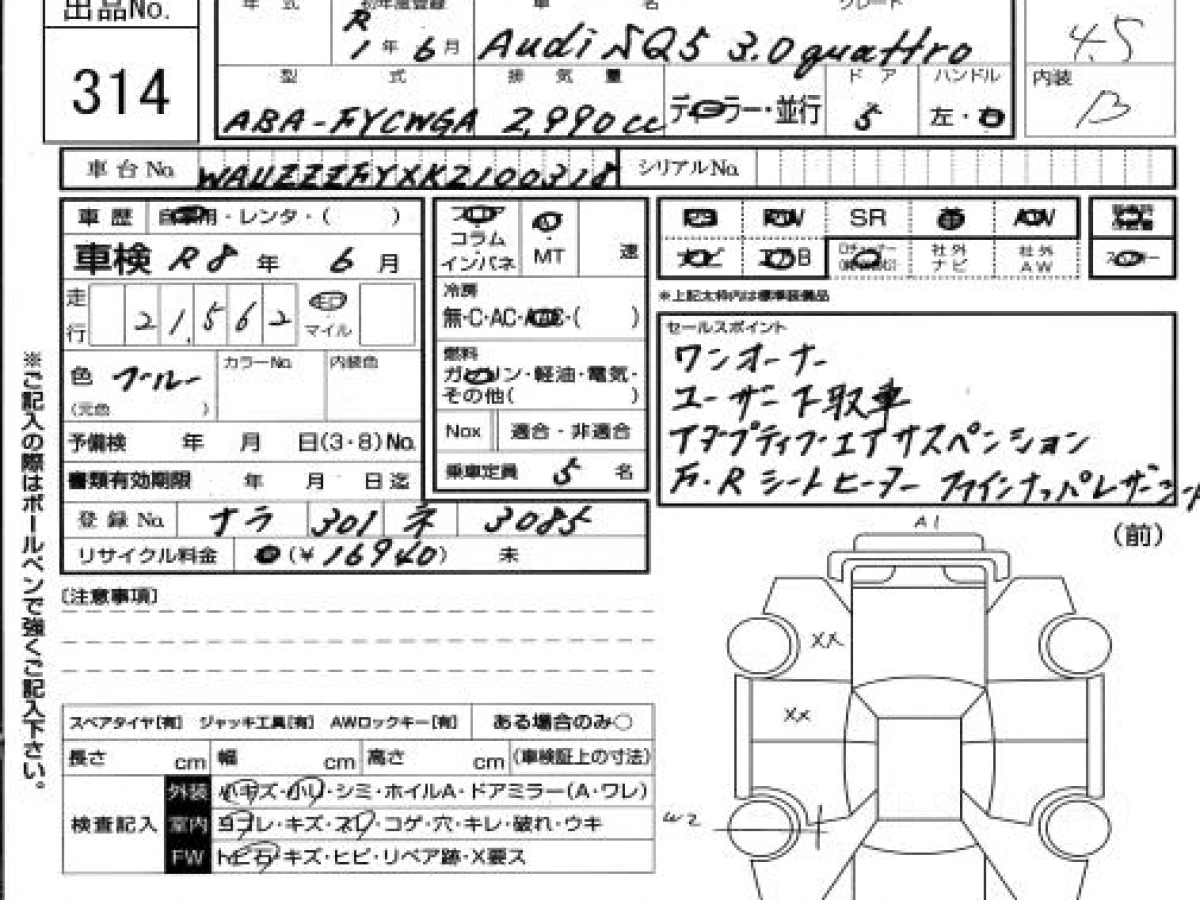 出品No.
314
年 式
初年度登録
車 名
グレード
R 1 年 6 月
Audi SQ5 3.0 quattro
4.5
型 式
排 気 量
ドア
ハンドル
内装
ABA-FYCWGA
2,990cc
ディーラー・並行
5
左・右
B
車台No.
WAUZZZFYXK2100318
シリアルNo.
車 歴
自家用・レンタ・( )
車検 R8 年 6 月
走行
21,562
マイル
色
ブルー
(元色 )
カラーNo.
内装色
予備検 年 月 日(3・8)No.
書類有効期限 年 月 日迄
登録No.
ナラ 301 ネ 3085
リサイクル料金
(¥16940) 未
フロア
コラム
インパネ
MT
速
冷房
無・C・AC・AAC・( )
燃料
ガソリン・軽油・電気・
その他( )
Nox
適合・非適合
乗車定員 5 名
SR
AW
ナビ
社外
ナビ
社外
AW
※上記太枠内は標準装備品
セールスポイント
ワンオーナー
ユーザー下取車
アダプティブエアサスペンション
F・Rシートヒーター ファインナッパレザーシート
※ご記入の際はボールペンで強くご記入下さい。
〔注意事項〕
スペアタイヤ[有] ジャッキ工具[有] AWロックキー[有]
ある場合のみ○
長さ cm 幅 cm 高さ cm (車検証上の寸法)
検査記入
外装 小キズ・小U・シミ・ホイルA・ドアミラー(A・ワレ)
室内 ヨゴレ・キズ・スレ・コゲ・穴・キレ・破れ・ウキ
FW トビ石・キズ・ヒビ・リペア跡・X要ス
A1
(前)
XX
XX
W2